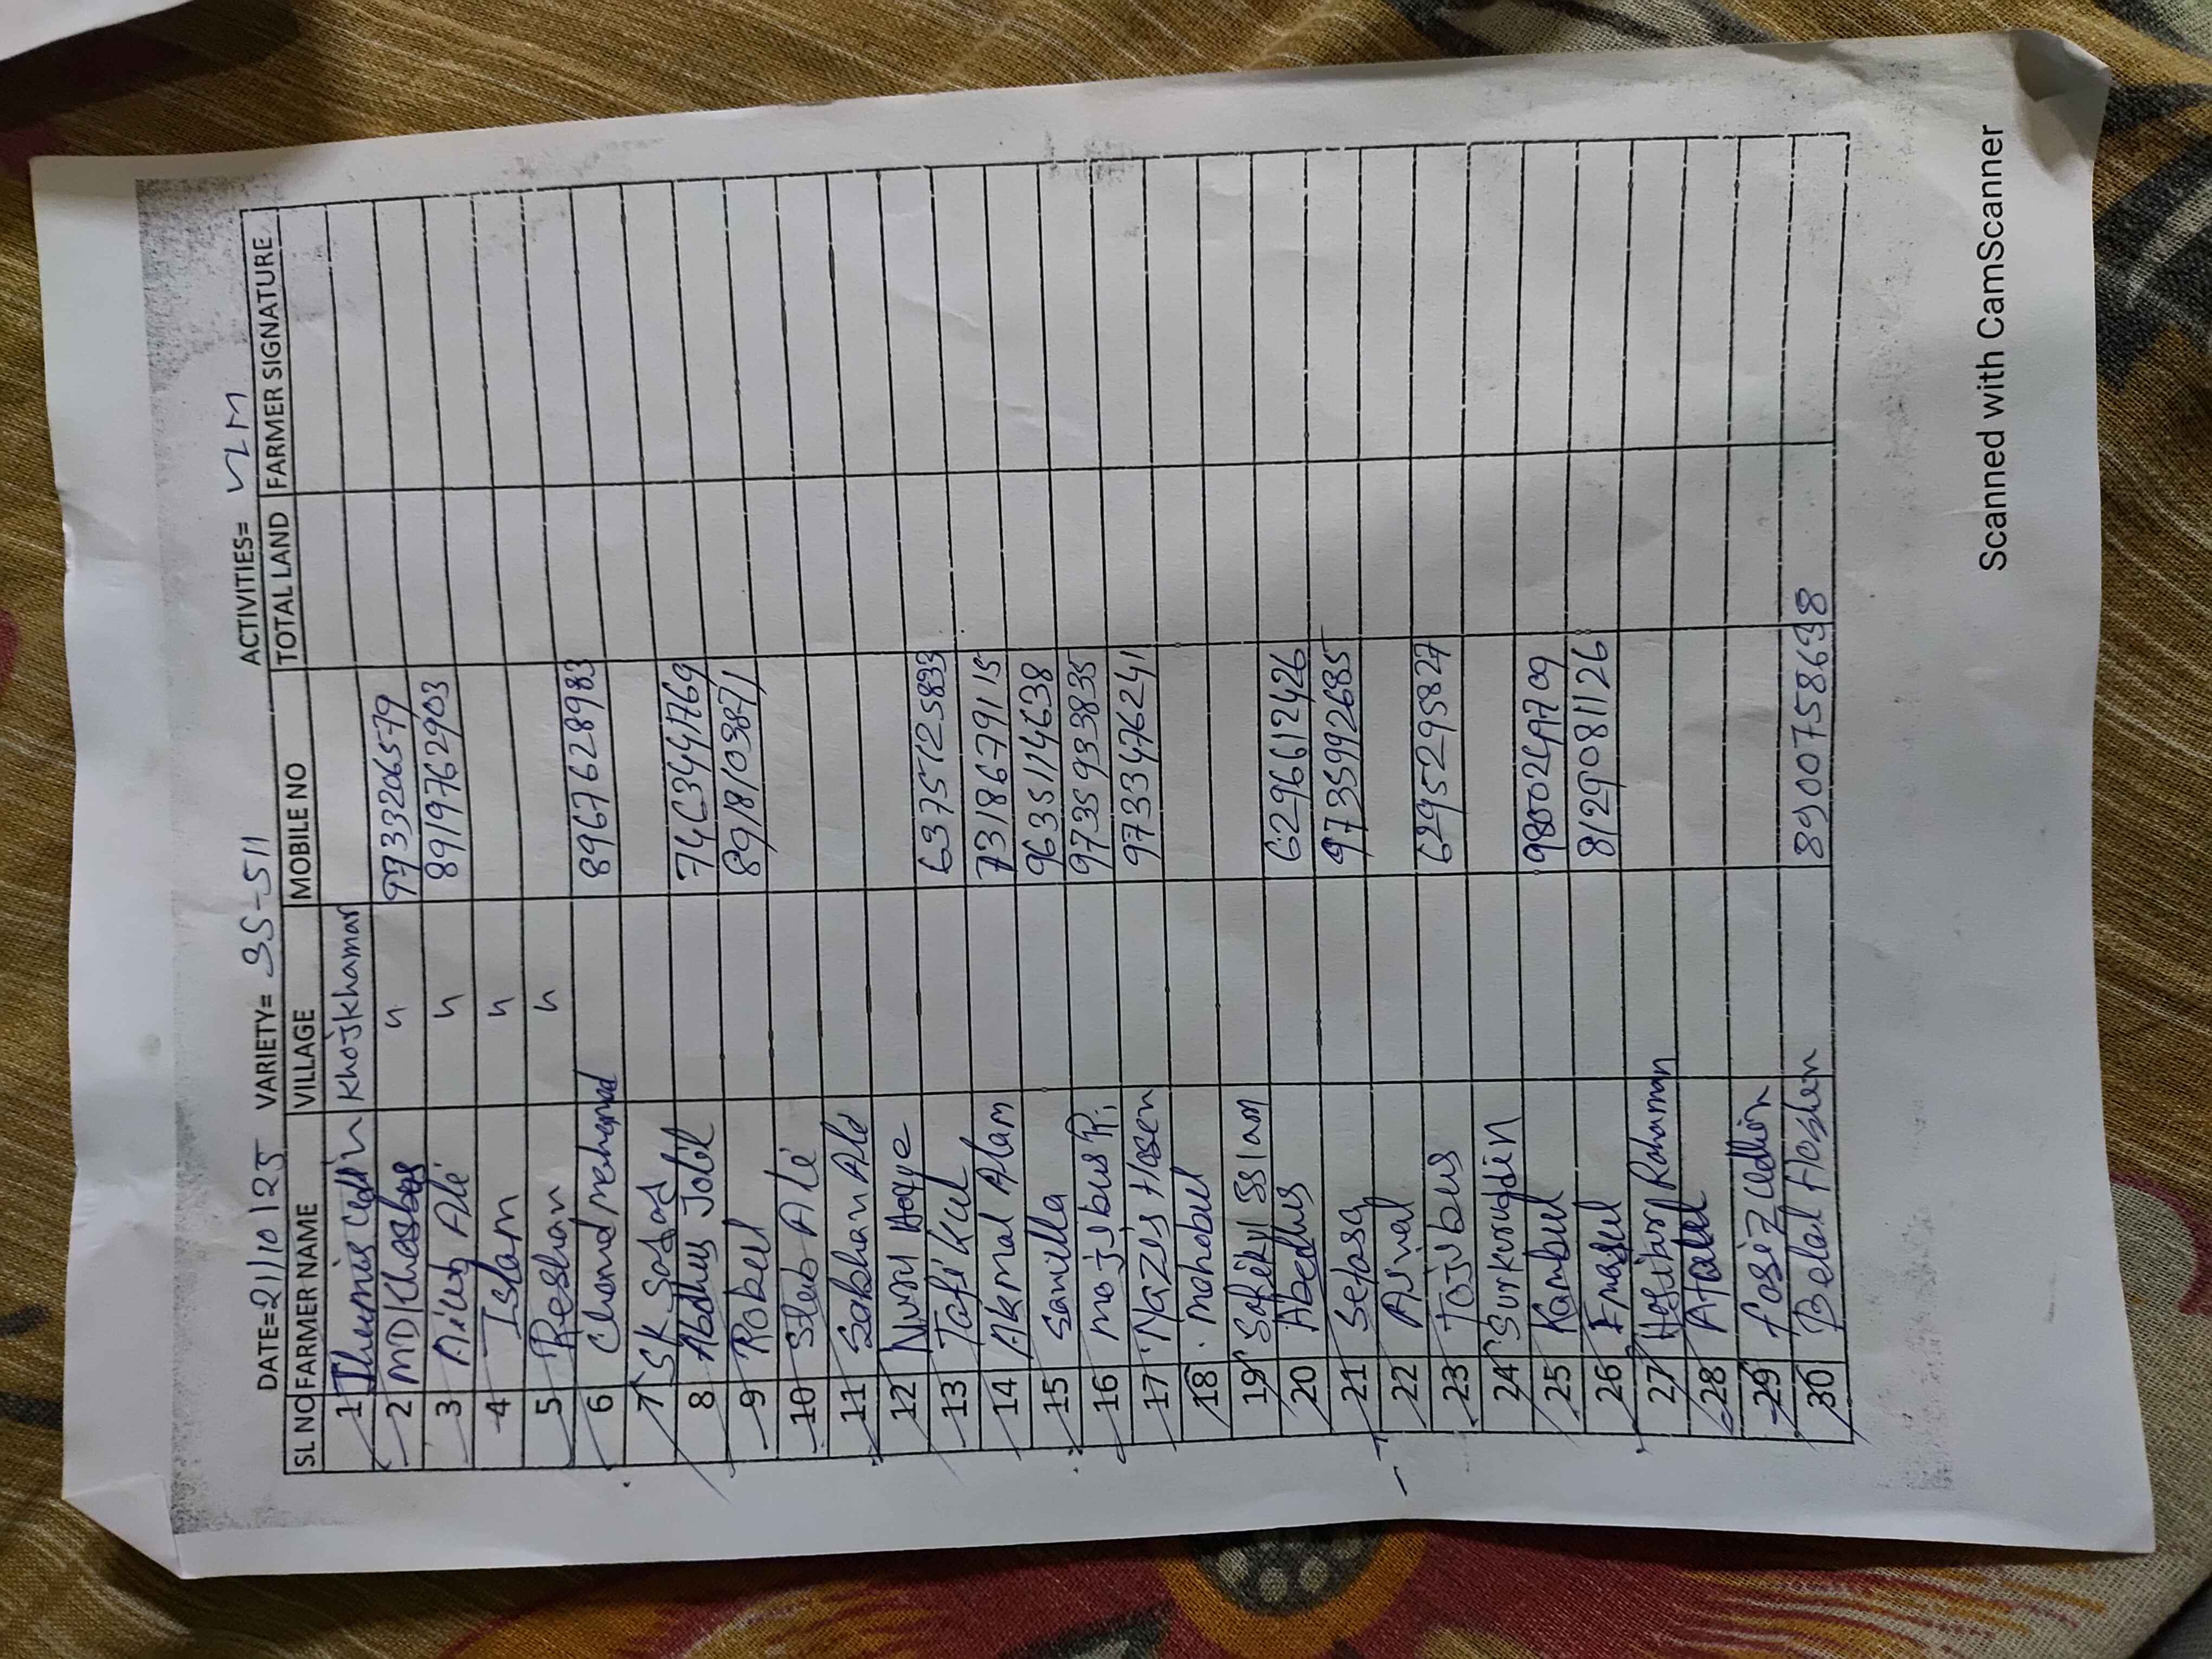 DATE=21/10/25 VARIETY= 35-511 ACTIVITIES= VLM
SL NO FARMER NAME VILLAGE MOBILE NO TOTAL LAND FARMER SIGNATURE
1 Khojkhamar
2 MD Khosbos " 9733206579
3 Ali " 8919762903
4 Islam "
5 Reshan "
6 Chand mehanad 8967628983
7 SK Sajad
8 Abdus Jolil 7463441769
9 Robeul 8918103871
10 Ale
11 Sobhan Ale
12 Nurul Hoque
13 Tafikul 6375125833
14 Akmal Alam 7318679115
15 Samulla 9635114638
16 mojibur R. 9735933835
17 Nazis Hosen 9733476241
18 mohobul
19 Safikul Islam
20 Abedus 6296612426
21 Setasa 9735992685
22
23 Tojibus 6295295827
24
25 Kambul
26 Emasul 8129081126
27 Rahaman
28
29 fosizuddin
30 Belal Hoshen 8900758638
Scanned with CamScanner